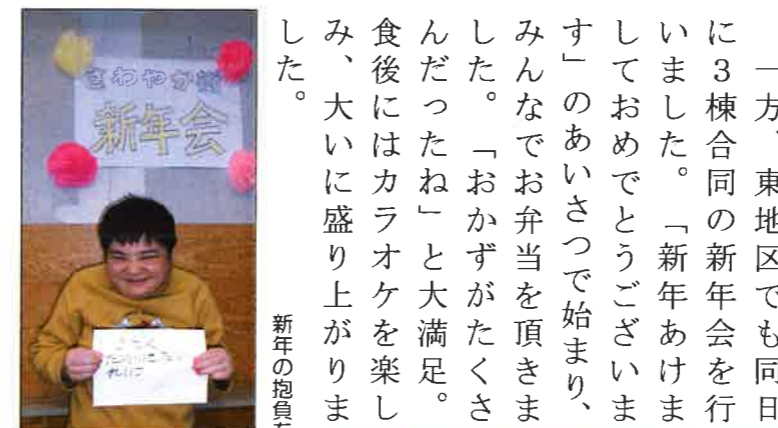 一方、東地区でも同日
に3棟合同の新年会を行
いました。「新年あけま
しておめでとうございま
す」のあいさつで始まり、
みんなでお弁当を頂きま
した。「おかずがたくさ
んだったね」と大満足。
食後にはカラオケを楽し
み、大いに盛り上がりま
した。
さわやか
新年会
新年の抱負を